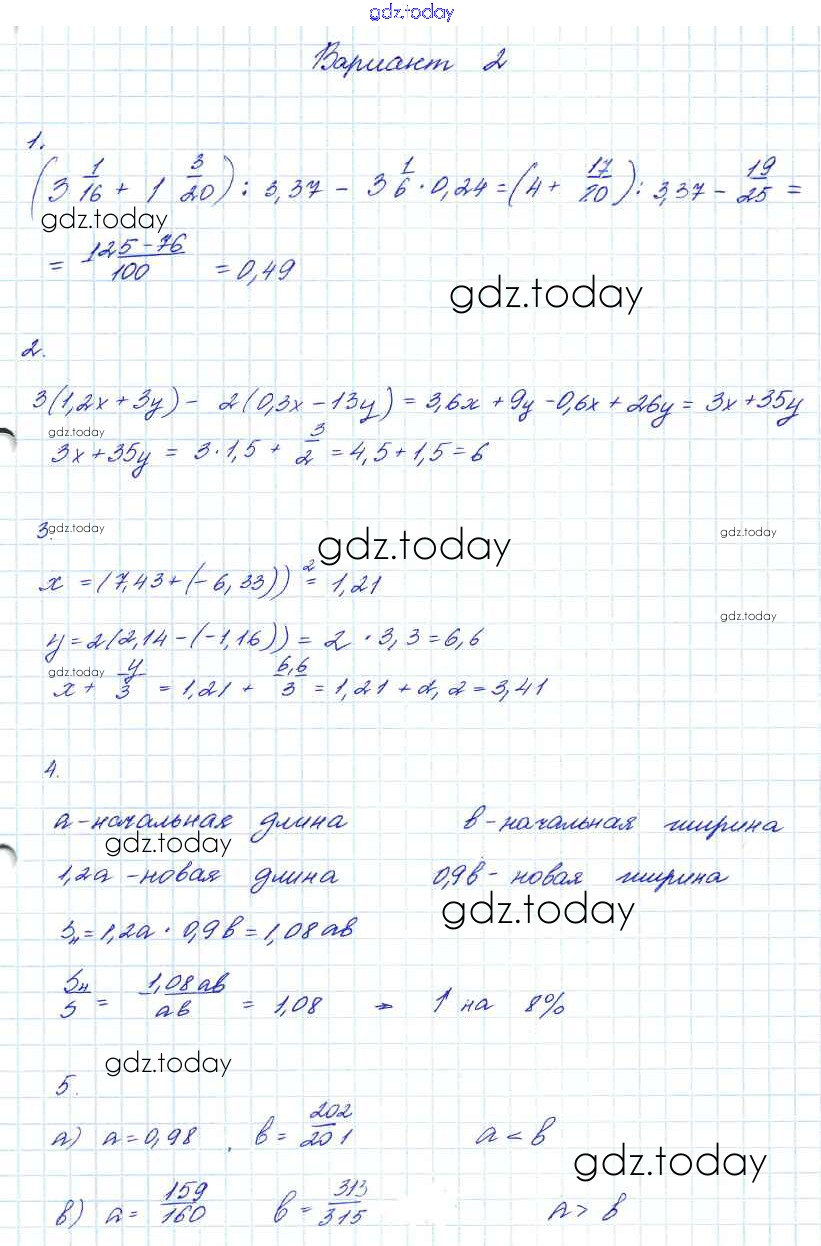 gdz.today
Вариант 2
1.
(3 1/16 + 1 3/20) : 3,37 - 3 1/6 · 0,24 = (4 + 17/20) : 3,37 - 19/25 =
gdz.today
= (125-76)/100 = 0,49
gdz.today
2.
3(1,2x + 3y) - 2(0,3x - 13y) = 3,6x + 9y - 0,6x + 26y = 3x + 35y
gdz.today
3x + 35y = 3·1,5 + 3/2 = 4,5 + 1,5 = 6
3. gdz.today
gdz.today
gdz.today
x = (7,43 + (-6,33))² = 1,21
gdz.today
y = 2(2,14 - (-1,16)) = 2 · 3,3 = 6,6
gdz.today
x + y/3 = 1,21 + 6,6/3 = 1,21 + 2,2 = 3,41
4.
a - начальная длина в - начальная ширина
gdz.today
1,2a - новая длина 0,9в - новая ширина
gdz.today
Sн = 1,2a · 0,9в = 1,08ав
Sн/S = 1,08ав/ав = 1,08 → ↑ на 8%
gdz.today
5.
а) a = 0,98, в = 202/201 a < в
gdz.today
в) a = 159/160 в = 313/315 a > в